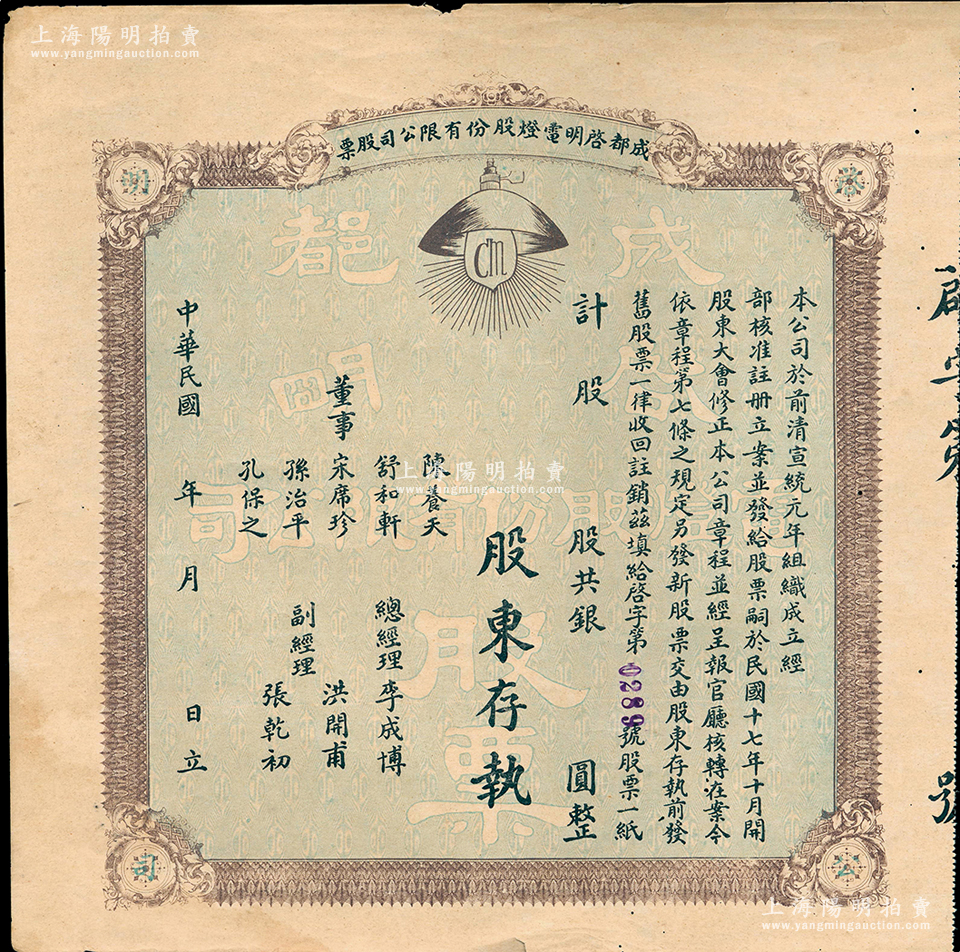 上海陽明拍賣
www.yangmingauction.com
上海陽明拍賣
www.yangmingauction.com
成都啓明電燈股份有限公司股票
啓
明
公
司
CM
成都
啟明
電燈股份有限公司
股票
本公司於前清宣統元年組織成立經
部核准註册立案並發給股票嗣於民國十七年十月開
股東大會修正本公司章程並經呈報官廳核轉在案今
依章程第七條之規定另發新股票交由股東存執前發
舊股票一律收回註銷茲填給啓字第0289號股票一紙
計股 股共銀 圓整
股東存執
董事 陳養天
舒和軒
宋席珍
孫治平
孔保之
總經理 李成博
副經理 洪開甫
張乾初
中華民國 年 月 日立
上海陽明拍賣
www.yangmingauction.com
上海陽明拍賣
www.yangmingauction.com